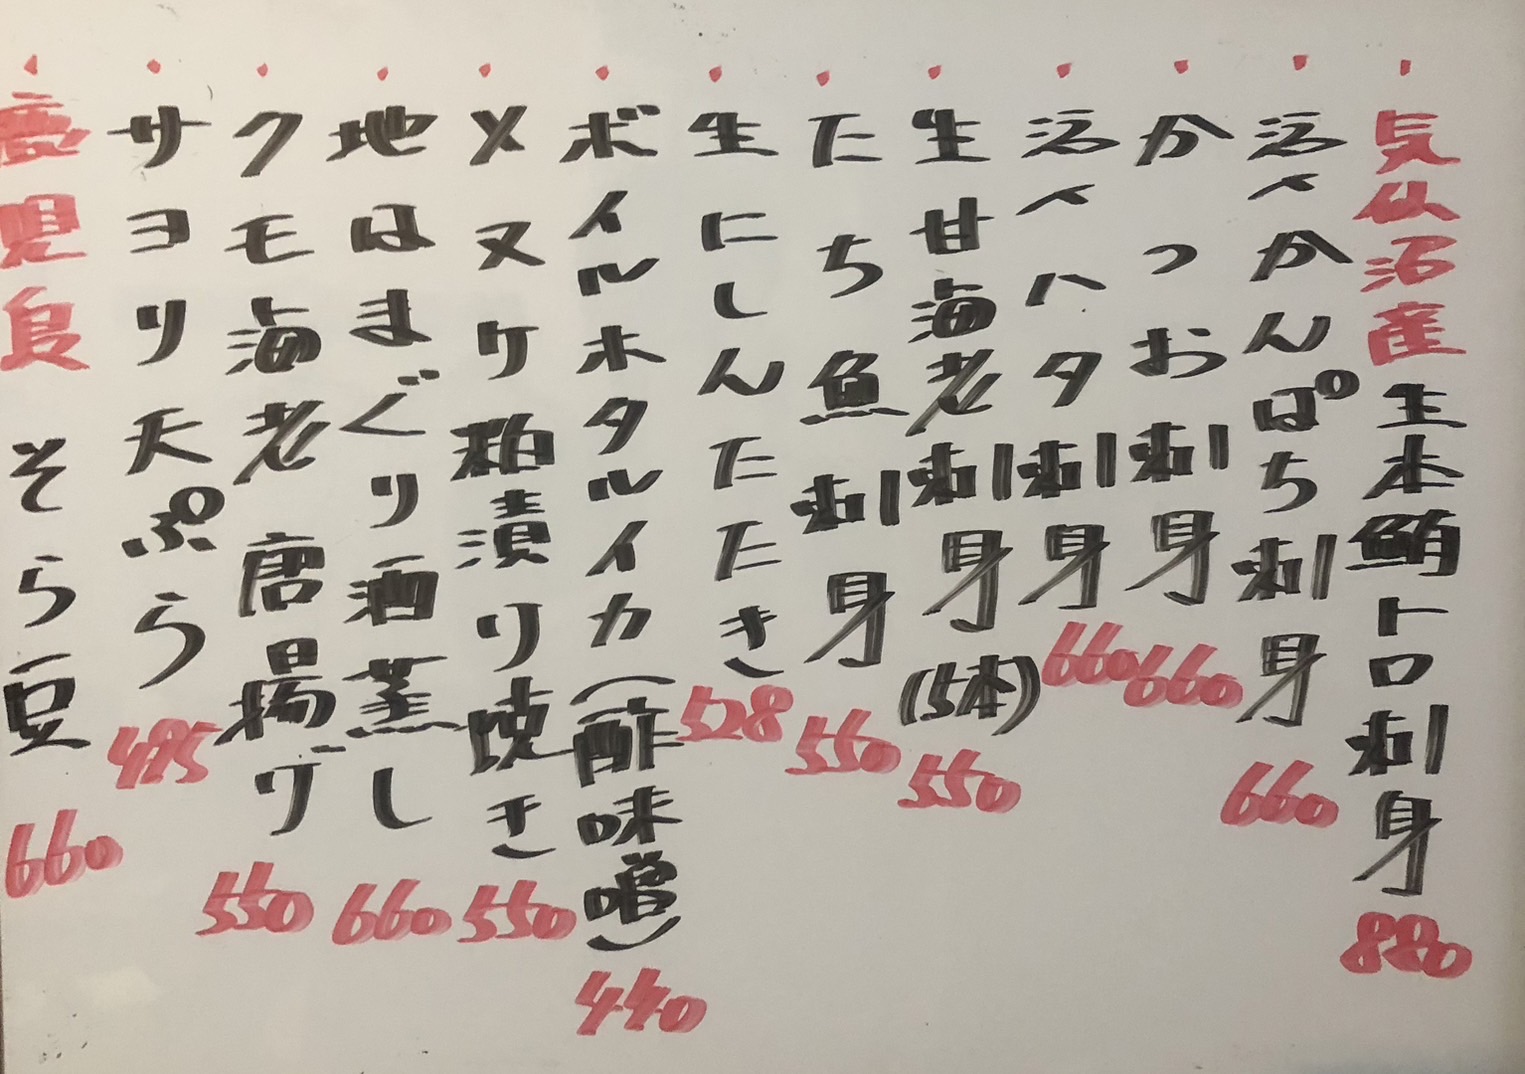 ・気仙沼産生本鮪トロ刺身 880
・活〆かんぱち刺身 660
・かつお刺身 660
・活〆ハタ刺身 660
・生甘海老刺身(5本) 550
・たち魚刺身 550
・生にしんたたき 528
・ボイルホタルイカ(酢味噌) 440
・メヌケ粕漬り焼き 550
・地はまぐり酒蒸し 660
・クモ海老唐揚げ 550
・サヨリ天ぷら 495
・鹿児島そら豆 660